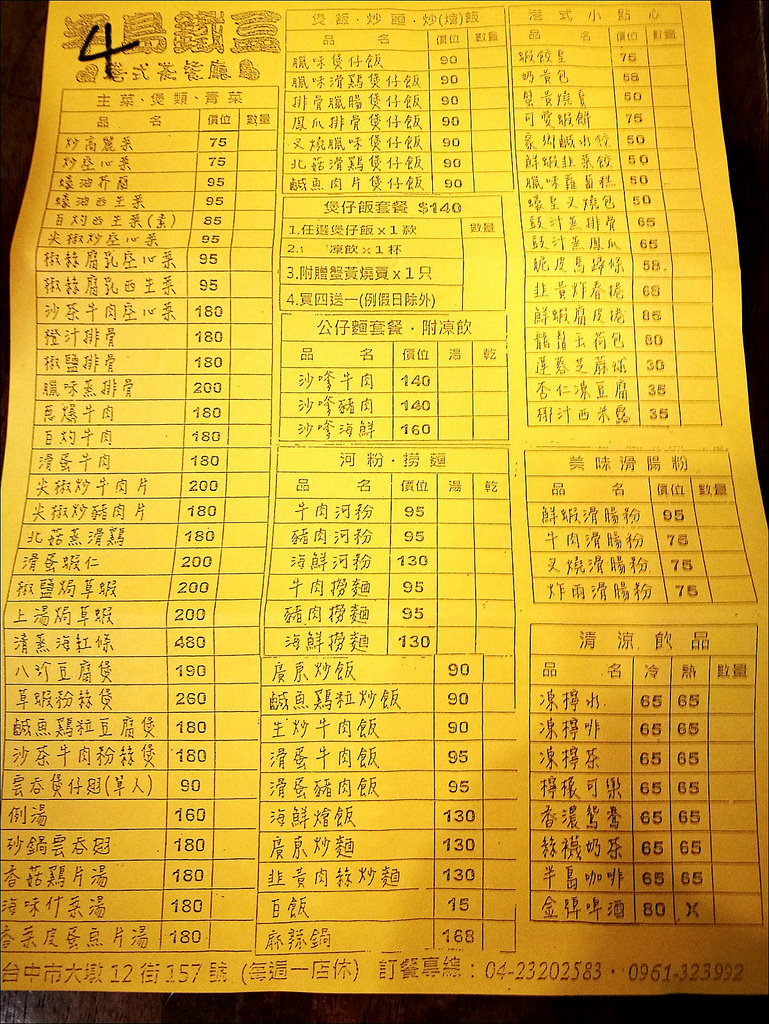 4
半島鐵盒
港式茶餐廳
主菜．煲類．青菜
品 名 價位 數量
炒高麗菜 75
炒空心菜 75
蠔油芥蘭 95
蠔油西生菜 95
白灼西生菜(素) 85
尖椒炒空心菜 95
椒絲腐乳空心菜 95
椒絲腐乳西生菜 95
沙茶牛肉空心菜 180
橙汁排骨 180
椒鹽排骨 180
臘味蒸排骨 200
蔥爆牛肉 180
白灼牛肉 180
滑蛋牛肉 180
尖椒炒牛肉片 200
尖椒炒豬肉片 180
北菇蒸滑鷄 180
滑蛋蝦仁 200
椒鹽焗草蝦 200
上湯焗草蝦 200
清蒸海紅條 480
八珍豆腐煲 190
草蝦粉絲煲 260
鹹魚鷄粒豆腐煲 180
沙茶牛肉粉絲煲 180
雲吞煲仔翅(單人) 90
例湯 160
砂鍋雲吞翅 180
香菇鷄片湯 180
海味什菜湯 180
香菜皮蛋魚片湯 180
煲飯．炒麵．炒(燴)飯
品 名 價位 數量
臘味煲仔飯 90
臘味滑鷄煲仔飯 90
排骨臘腸煲仔飯 90
鳳爪排骨煲仔飯 90
叉燒臘味煲仔飯 90
北菇滑鷄煲仔飯 90
鹹魚肉片煲仔飯 90
煲仔飯套餐 $140
1.任選煲仔飯×1款 數量
2. 凍飲×1杯
3.附贈蟹黃燒賣×1只
4.買四送一(例假日除外)
公仔麵套餐．附凍飲
品 名 價位 湯 乾
沙嗲牛肉 140
沙嗲豬肉 140
沙嗲海鮮 160
河粉．撈麵
品 名 價位 湯 乾
牛肉河粉 95
豬肉河粉 95
海鮮河粉 130
牛肉撈麵 95
豬肉撈麵 95
海鮮撈麵 130
廣東炒飯 90
鹹魚鷄粒炒飯 90
生炒牛肉飯 90
滑蛋牛肉飯 95
滑蛋豬肉飯 95
海鮮燴飯 130
廣東炒麵 130
韭黃肉絲炒麵 130
白飯 15
麻辣鍋 168
港式小點心
品 名 價位 數量
蝦餃皇 75
奶黃包 58
蟹黃燒賣 50
可愛蝦餅 75
家鄉鹹水餃 50
鮮蝦韭菜餃 50
臘味蘿蔔糕 50
蠔皇叉燒包 50
豉汁蒸排骨 65
豉汁蒸鳳爪 65
脆皮馬蹄條 58
韭黃炸春捲 68
鮮蝦腐皮捲 85
龍鬚玉荷包 80
蓮蓉芝麻球 30
杏仁凍豆腐 35
椰汁西米露 35
美味滑腸粉
品 名 價位 數量
鮮蝦滑腸粉 95
牛肉滑腸粉 75
叉燒滑腸粉 75
炸兩滑腸粉 75
清涼飲品
品 名 冷 熱 數量
凍檸水 65 65
凍檸啡 65 65
凍檸茶 65 65
檸檬可樂 65 65
香濃鴛鴦 65 65
絲襪奶茶 65 65
半島咖啡 65 65
金牌啤酒 80 X
台中市大墩12街157號 (每週一店休) 訂餐專線：04-23202583．0961-323992